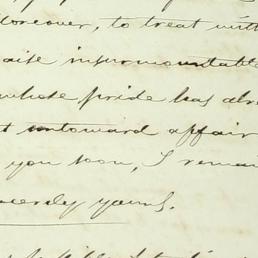 moreover, to treat with
raise insurmountable
whose pride has alre
t untoward affair
you soon, I remai
ncerely yours.